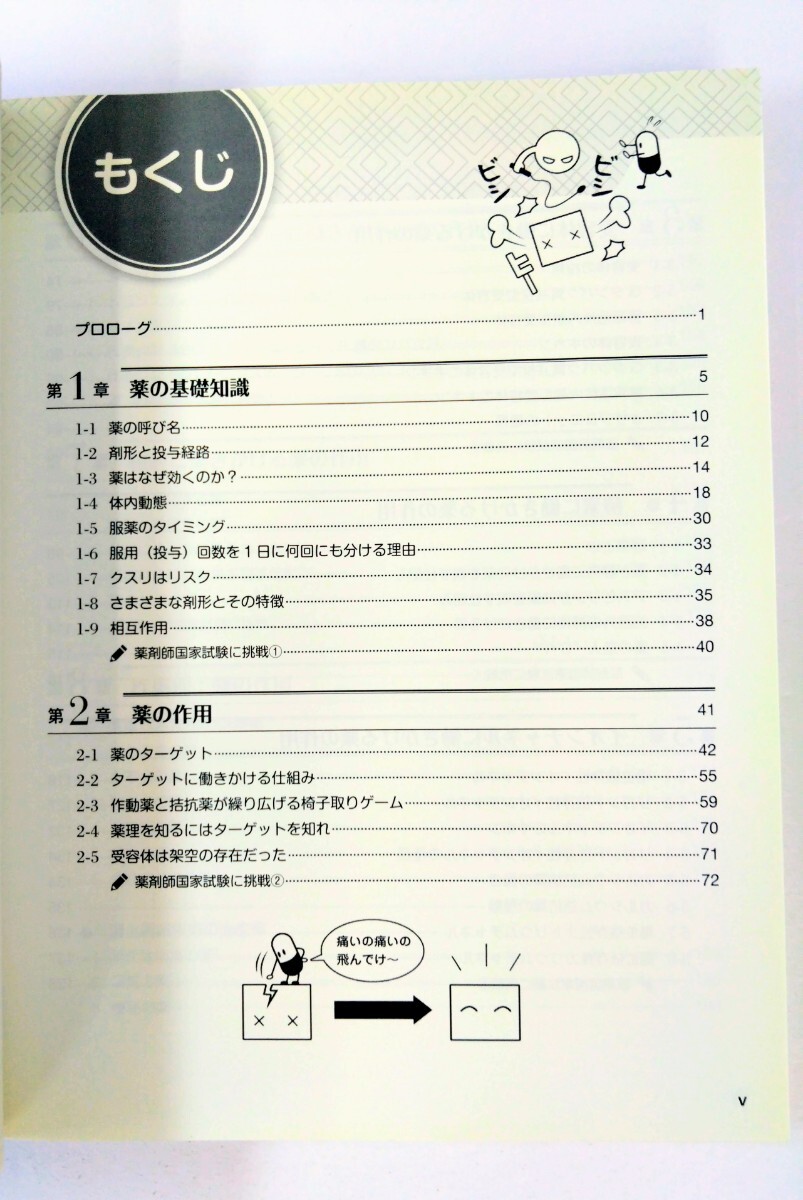 もくじ
ビシ
ビシ
プロローグ……1
第1章 薬の基礎知識 5
1-1 薬の呼び名……10
1-2 剤形と投与経路……12
1-3 薬はなぜ効くのか？……14
1-4 体内動態……18
1-5 服薬のタイミング……30
1-6 服用（投与）回数を1日に何回にも分ける理由……33
1-7 クスリはリスク……34
1-8 さまざまな剤形とその特徴……35
1-9 相互作用……38
薬剤師国家試験に挑戦①……40
第2章 薬の作用 41
2-1 薬のターゲット……42
2-2 ターゲットに働きかける仕組み……55
2-3 作動薬と拮抗薬が繰り広げる椅子取りゲーム……59
2-4 薬理を知るにはターゲットを知れ……70
2-5 受容体は架空の存在だった……71
薬剤師国家試験に挑戦②……72
痛いの痛いの
飛んでけ～
v